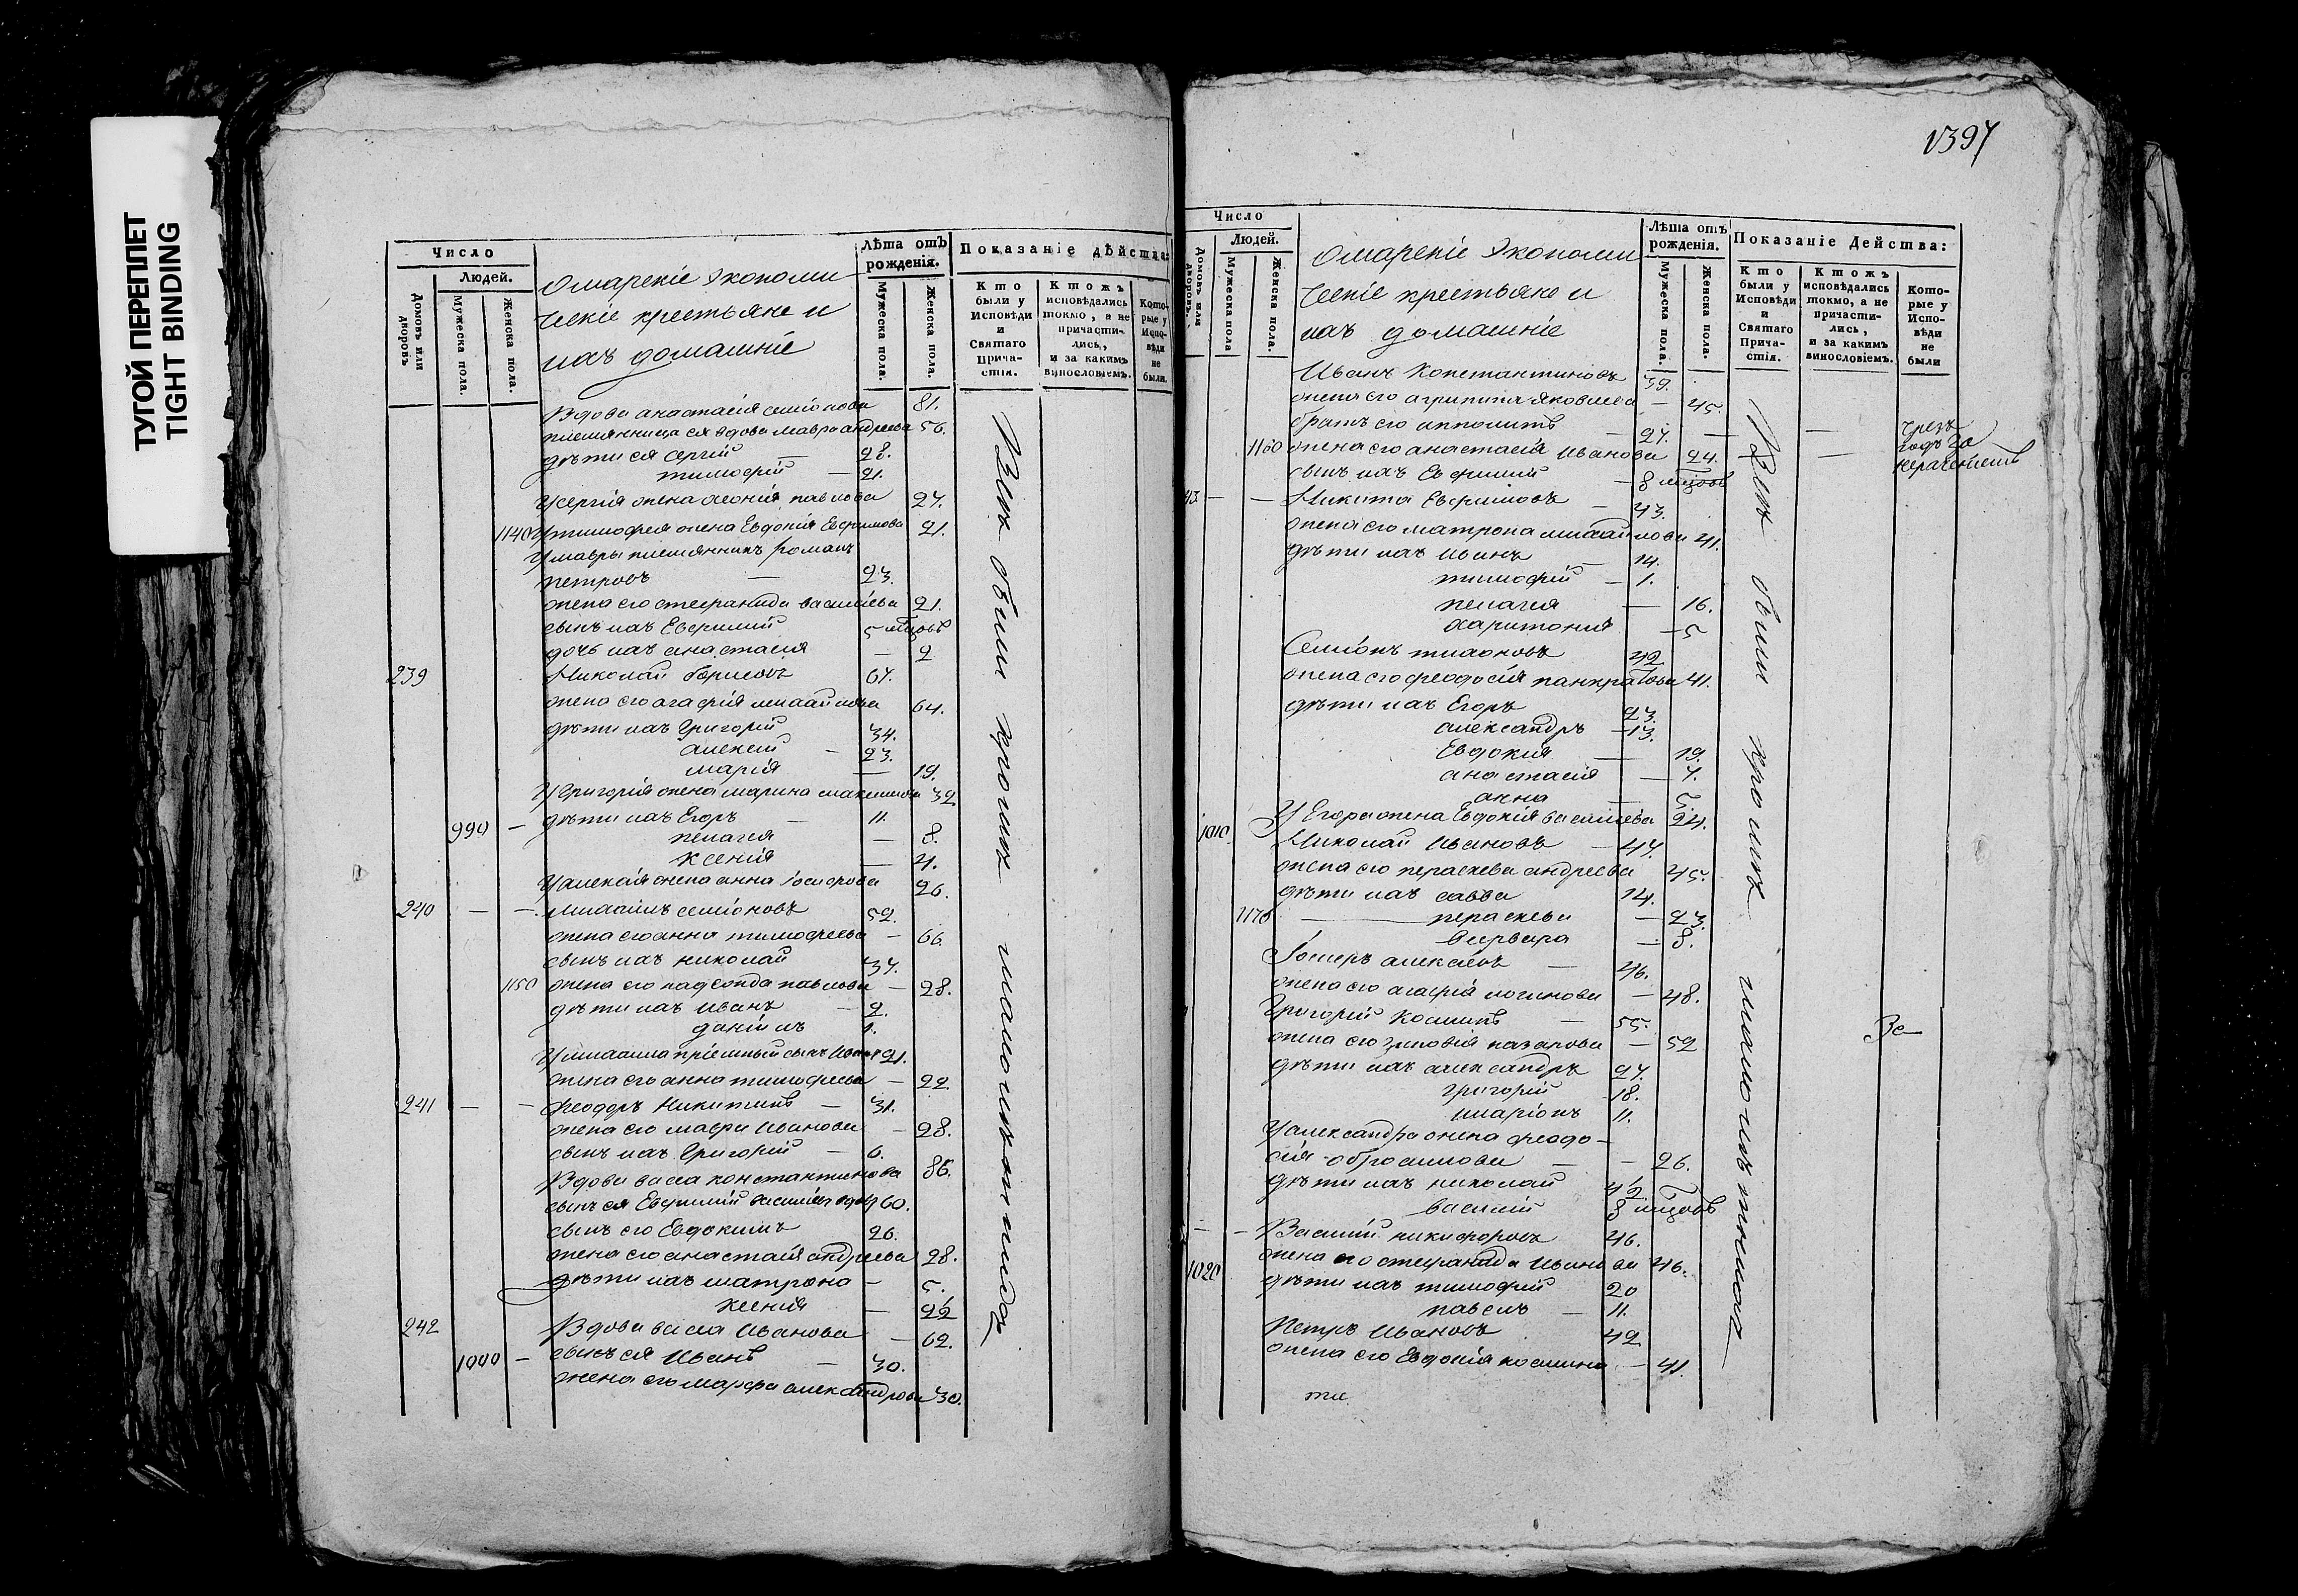 ТУГОЙ ПЕРЕПЛЕТ
TIGHT BINDING
Число
Людей.
Домовъ или дворовъ
Мужеска пола.
Женска пола.
Омарскіе Экономи
ческіе крестьяне и
ихъ домашніе
Лѣта отъ рожденія.
Мужеска пола.
Женска пола.
Показаніе дѣйства:
Кто были у Исповѣди и Святаго Прича-стія.
Ктожъ исповѣдались токмо, а не причасти-лись, и за какимъ винословіемъ.
Кото-рые у Испо-вѣди не были.
Вдова анастасія семіонова 81.
племянница ея вдова мавра андреева 56.
дѣти ея сергій — 28.
тимофей — 21.
У сергія жена ксенія павлова 27.
1140 У тимофея жена Евдокія Евфимова 21.
У мавры племянникъ романъ
петровъ — 23.
жена его стефанида василіева 21.
сынъ ихъ Евфимій 5 мцовъ
дочь ихъ анастасія — 2
239 Николай борисовъ 67.
жена его агафія михайлова 64.
дѣти ихъ Григорій 34.
алексей — 23.
марія — 19.
У Григорія жена марина максимова 32
990 — дѣти ихъ Егоръ — 11.
пелагея — 8.
ксенія — 4.
У алексія жена анна іосифова 26.
240 — — михаилъ семіоновъ 59.
жена его анна тимофеева — 66.
сынъ ихъ николай 37.
1150 жена его павлова — 28.
дѣти ихъ иванъ — 2.
даніилъ 1.
У михаила пріемный сынъ Иванъ 21.
жена его анна тимофеева — 22.
241 — — феодоръ Никитинъ — 31.
жена его марфа Иванова — 28.
сынъ ихъ Григорій — 6.
Вдова васса константинова 86.
сынъ ея Евфимій василіевъ вдовъ 60.
сынъ его Евдокимъ 26.
жена его анастасія андреева 28.
дѣти ихъ матрона — 5.
ксенія — 2½
242 Вдова васса Иванова — 62.
1000 — сынъ ея Иванъ — 30.
жена его марфа александрова 30.
Всѣ были кромѣ малолѣтнихъ
1397
Число
Людей.
Домовъ или дворовъ.
Мужеска пола
Женска пола.
Омарскіе Экономи
ческіе крестьяне и
ихъ домашніе
Лѣта отъ рожденія.
Мужеска пола.
Женска пола.
Показаніе Действа:
Кто были у Исповѣди и Святаго Прича-стія.
Ктожъ исповѣдались токмо, а не причасти-лись, и за каким винословіемъ.
Кото-рые у Испо-вѣди не были
Иванъ Константиновъ 39.
жена его агрипина яковлева — 45.
братъ его ипполитъ — 27. — — чрезъ
1160 жена его анастасія Иванова 24. — годъ за
сынъ ихъ Евфимий — 8 мцовъ нераченіемъ
43 — — Никита Евфимовъ — 43.
жена его матрона михайлова 41.
дѣти ихъ иванъ — 14.
тимофей — 1.
пелагея — 16.
харитонія — 5
Семіонъ тихоновъ 42
жена его феодосія панкратова 41.
дѣти ихъ Егоръ 23.
александръ — 13.
Евдокия — 19.
анастасія — 7.
анна — 5.
1010 У Егора жена Евдокія василіева 24.
Николай Ивановъ — 47.
жена его параскева андреева 45.
дѣти ихъ савва 14.
1170 — параскева — 23.
варвара — 8.
алексѣевъ — 46.
жена его агафія логинова — 48.
Григорій Косминъ — 55.
жена его зиновія назарова — 52
дѣти ихъ александръ 27.
григорій 18.
иларіонъ 11.
У александра жена феодо-
сія абросимова — — 26.
дѣти ихъ николай 4½
василій 8 мцовъ
— — Василий никифоровъ 46.
1020 жена его стефанида Иванова 46.
дѣти ихъ тимофей 20
павелъ — 11.
Петръ Ивановъ 42
жена его Евдокія космина — 41.
Всѣ были кромѣ малолѣтнихъ